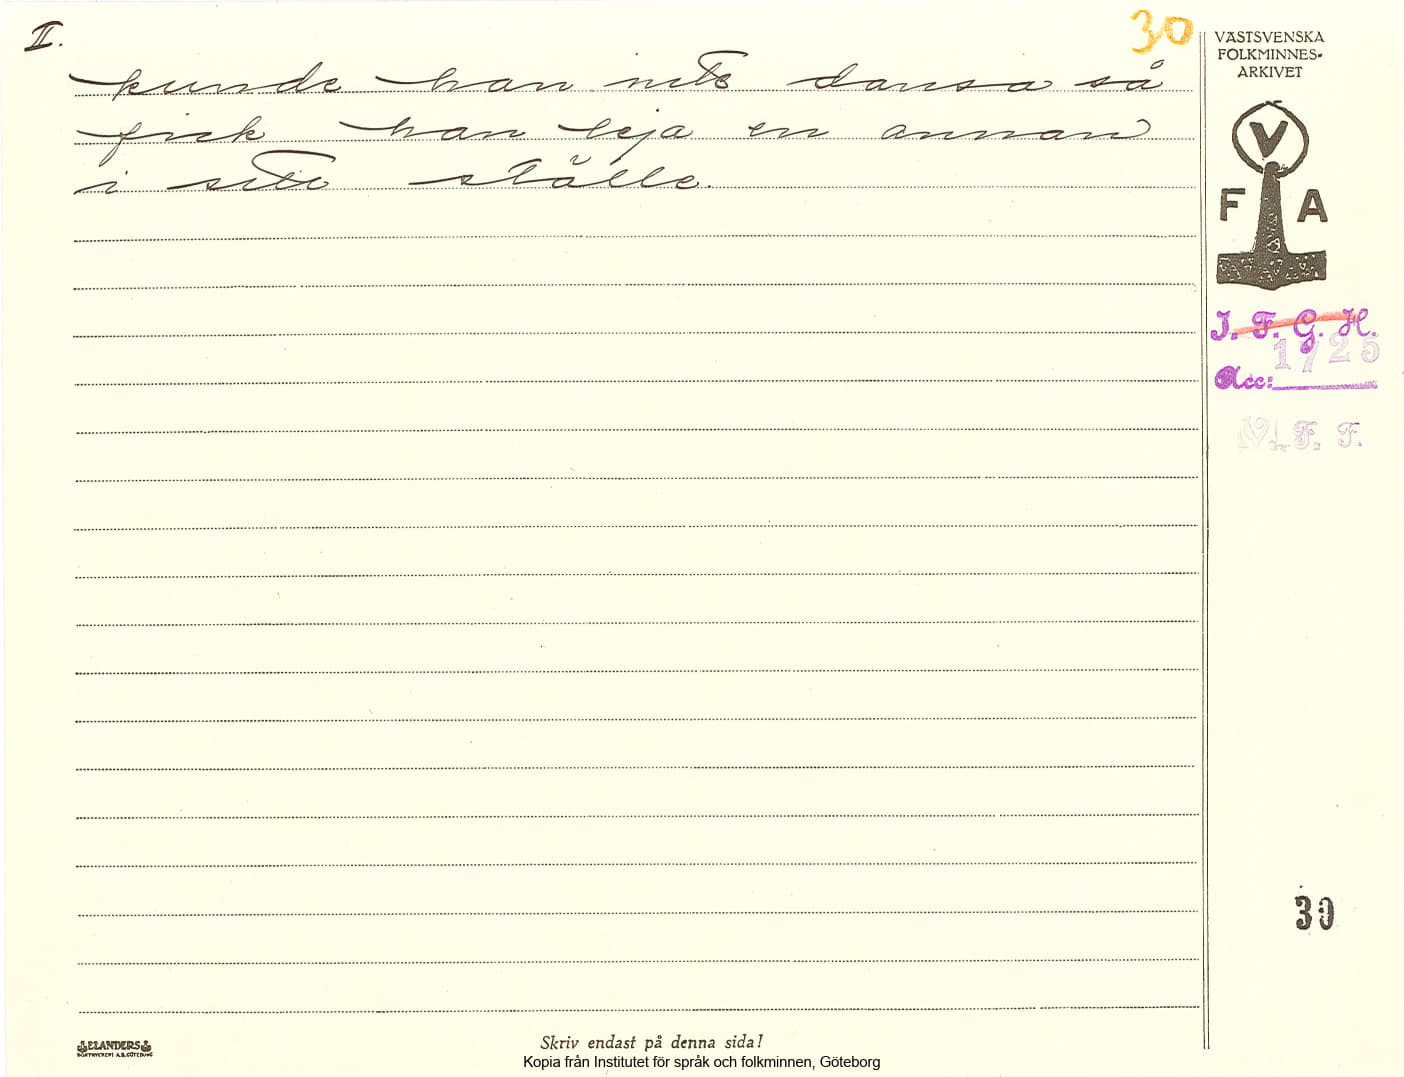 II.
30
kunde han inte dansa så
fick han leja en annan
i sitt ställe.
VÄSTSVENSKA
FOLKMINNES-
ARKIVET
V
F A
I. F. G. H.
1725
Acc:
F. F.
30
ELANDERS
BOKTRYCKERI A.B. GÖTEBORG
Skriv endast på denna sida!
Kopia från Institutet för språk och folkminnen, Göteborg